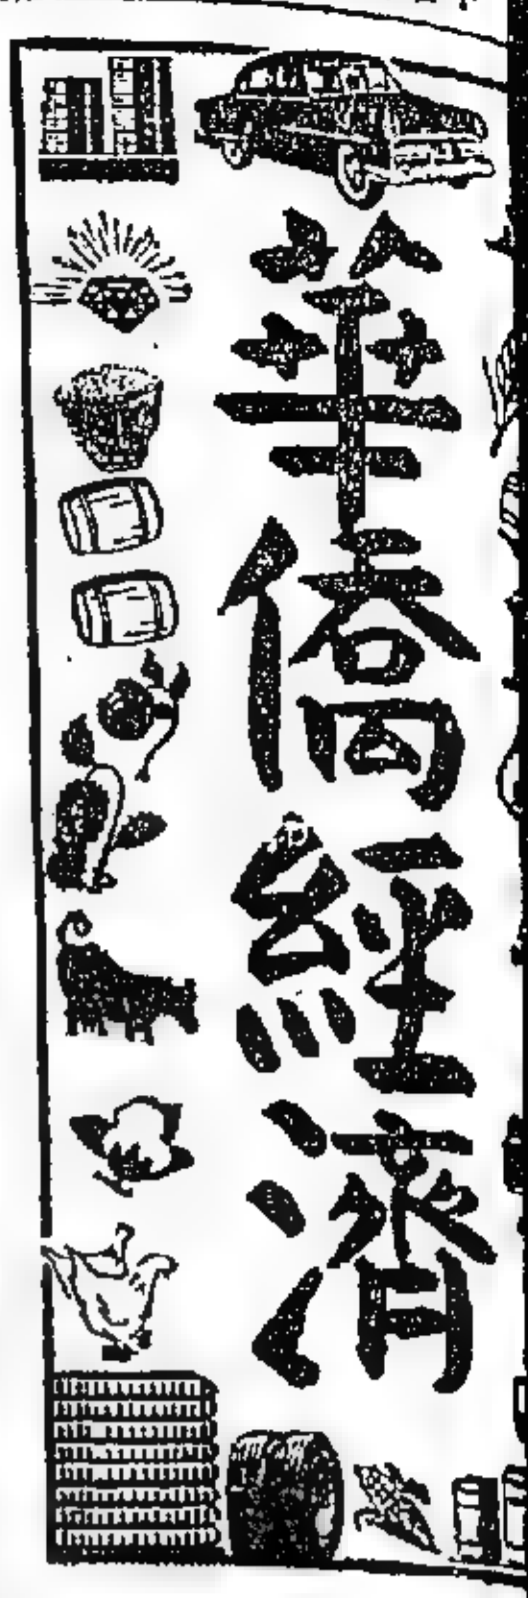 華僑經濟